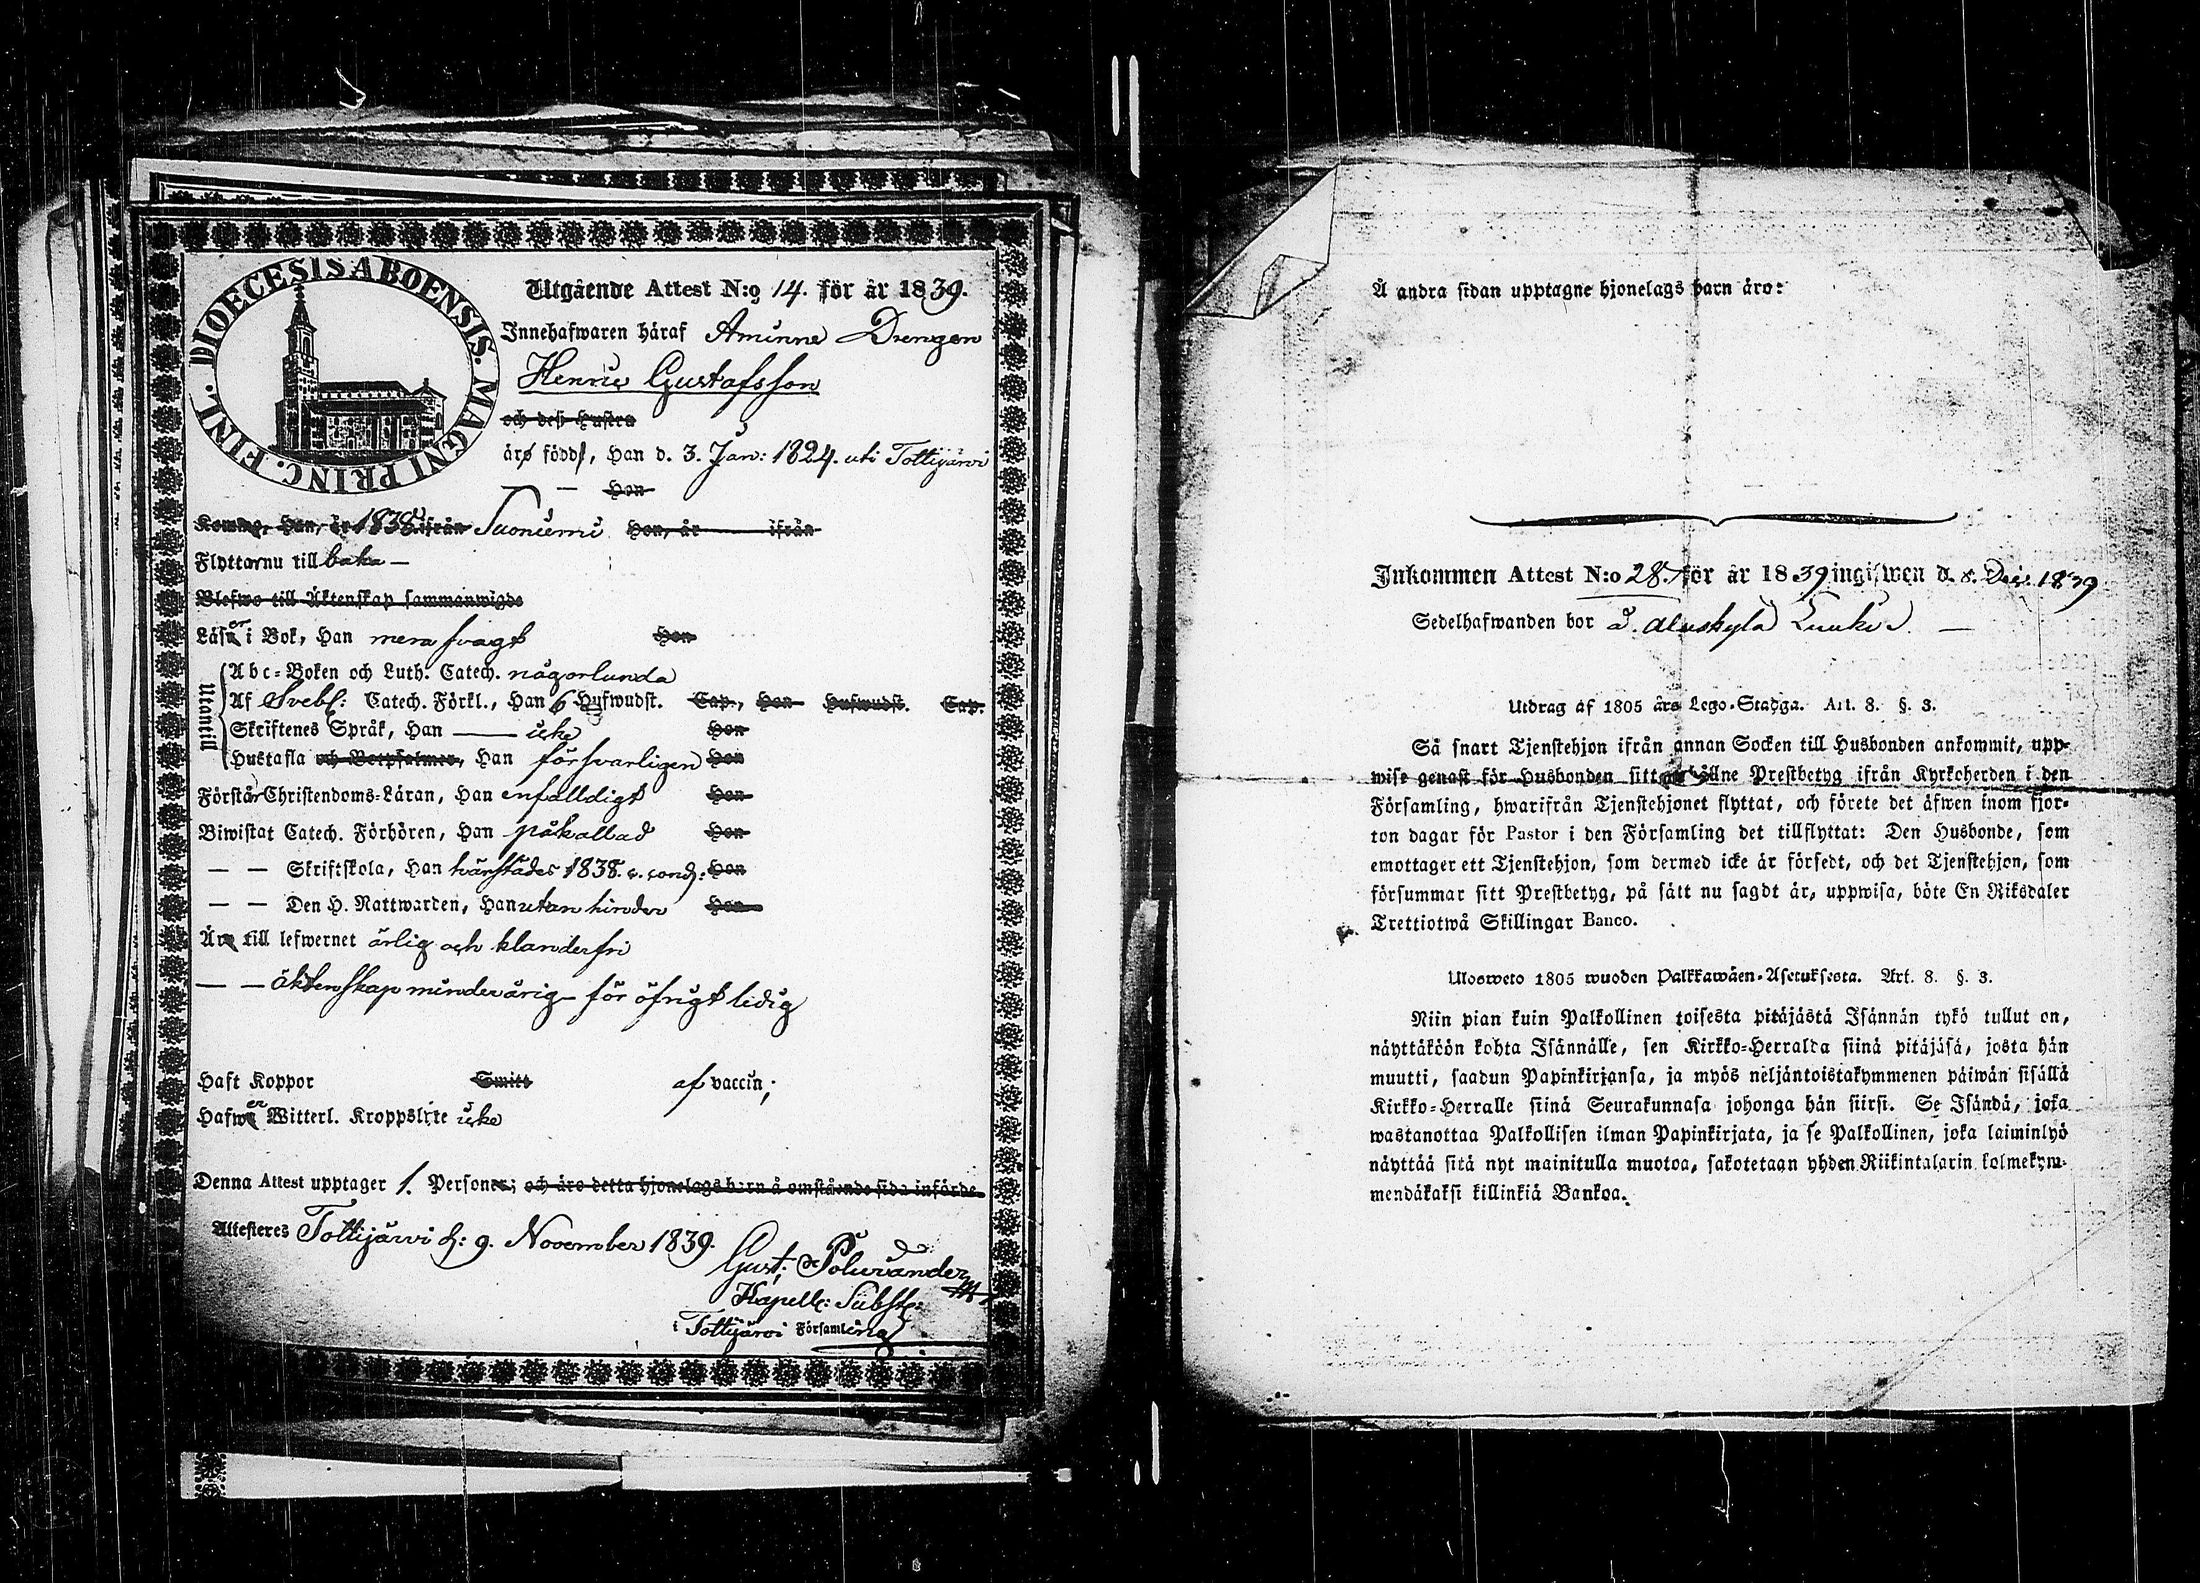 DIOECESIS ABOENSIS. MAGNI PRINC. FINL.
Utgående Attest N:o 14. för år 1839.
Innehafwaren häraf Aminne Drengen
Henric Gustafsson
och dess Hustru
äro född, Han d. 3. Jan: 1824. uti Tottijärvi
— — Hon
Komne, Han, år 1838 ifrån Suoniemi Hon, år ifrån
Flyttar nu till baka —
Blefwo till Äktenskap sammanwigde
Läser i Bok, Han mera svagt Hon
Utantill
Abc-Boken och Luth. Catech. någorlunda
Af Svebl: Catech. Förkl., Han 6 Hufwudst. Cap., Hon Hufwudst. Cap.
Skriftenes Språk, Han —— icke Hon
Hustafla och Botpsalmer, Han försvarligen Hon
Förstår Christendoms-Läran, Han enfalldigt Hon
Biwistat Catech. Förhören, Han påkallad Hon
— — Skriftskola, Han härstädes 1838. Hon
— — Den H. Nattwarden, Han utan hinder Hon
Är till lefwernet ärlig och klanderfri
— — äktenskap minderårig — för öfrigt ledig
Haft Koppor Smitt af vaccin;
Hafwer Witterl. Kroppslyte icke
Denna Attest upptager 1. Person; och äro detta hjonelags barn å omstående sida införde
Attesteres Tottijärvi d: 9. November 1839.
Gust: Polviander
Kapell: Subst:
i Tottijärvi Församling
Å andra sidan upptagne hjonelags barn äro:
Inkommen Attest N:o 28. för år 1839 ingifwen d. 8. Dec. 1839
Sedelhafwanden bor å Aluskylä
Utdrag af 1805 års Lego-Stadga. Art. 8. §. 3.
Så snart Tjenstehjon ifrån annan Socken till Husbonden ankommit, upp-
wise genast för Husbonden sitt erhållne Prestbetyg ifrån Kyrkoherden i den
Församling, hwarifrån Tjenstehjonet flyttat, och förete det äfwen inom fjor-
ton dagar för Pastor i den Församling det tillflyttat: Den Husbonde, som
emottager ett Tjenstehjon, som dermed icke är försedt, och det Tjenstehjon, som
försummar sitt Prestbetyg, på sätt nu sagdt är, uppwisa, böte En Riksdaler
Trettiotwå Skillingar Banco.
Ulosweto 1805 wuoden Palkkawäen-Asetuksesta. Art. 8. §. 3.
Niin pian kuin Palkollinen toisesta pitäjästä Isännän tykö tullut on,
näyttäköön kohta Isännälle, sen Kirkko-Herralda siinä pitäjäsä, josta hän
muutti, saadun Papinkirjansa, ja myös neljäntoistakymmenen päiwän sisällä
Kirkko-Herralle siinä Seurakunnasa johonga hän siirsi. Se Isändä, joka
wastanottaa Palkollisen ilman Papinkirjata, ja se Palkollinen, joka laiminlyö
näyttää sitä nyt mainitulla muotoa, sakotetaan yhden Riikintalarin kolmekym-
mendäkaksi killinkiä Bankoa.